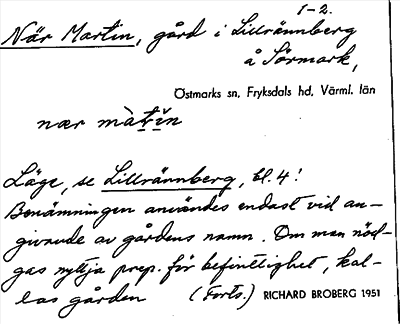 1-2.
När Martin, gård i Lillrännberg
å Sörmark,
Östmarks sn, Fryksdals hd, Värml. län
nær màṭṛin
Läge, se Lillrännberg, bl. 4!
Benämningen användes endast vid an-
givande av gårdens namn. Om man nöd-
gas nyttja prep. för befintlighet, kal-
las gården (Forts.) RICHARD BROBERG 1951